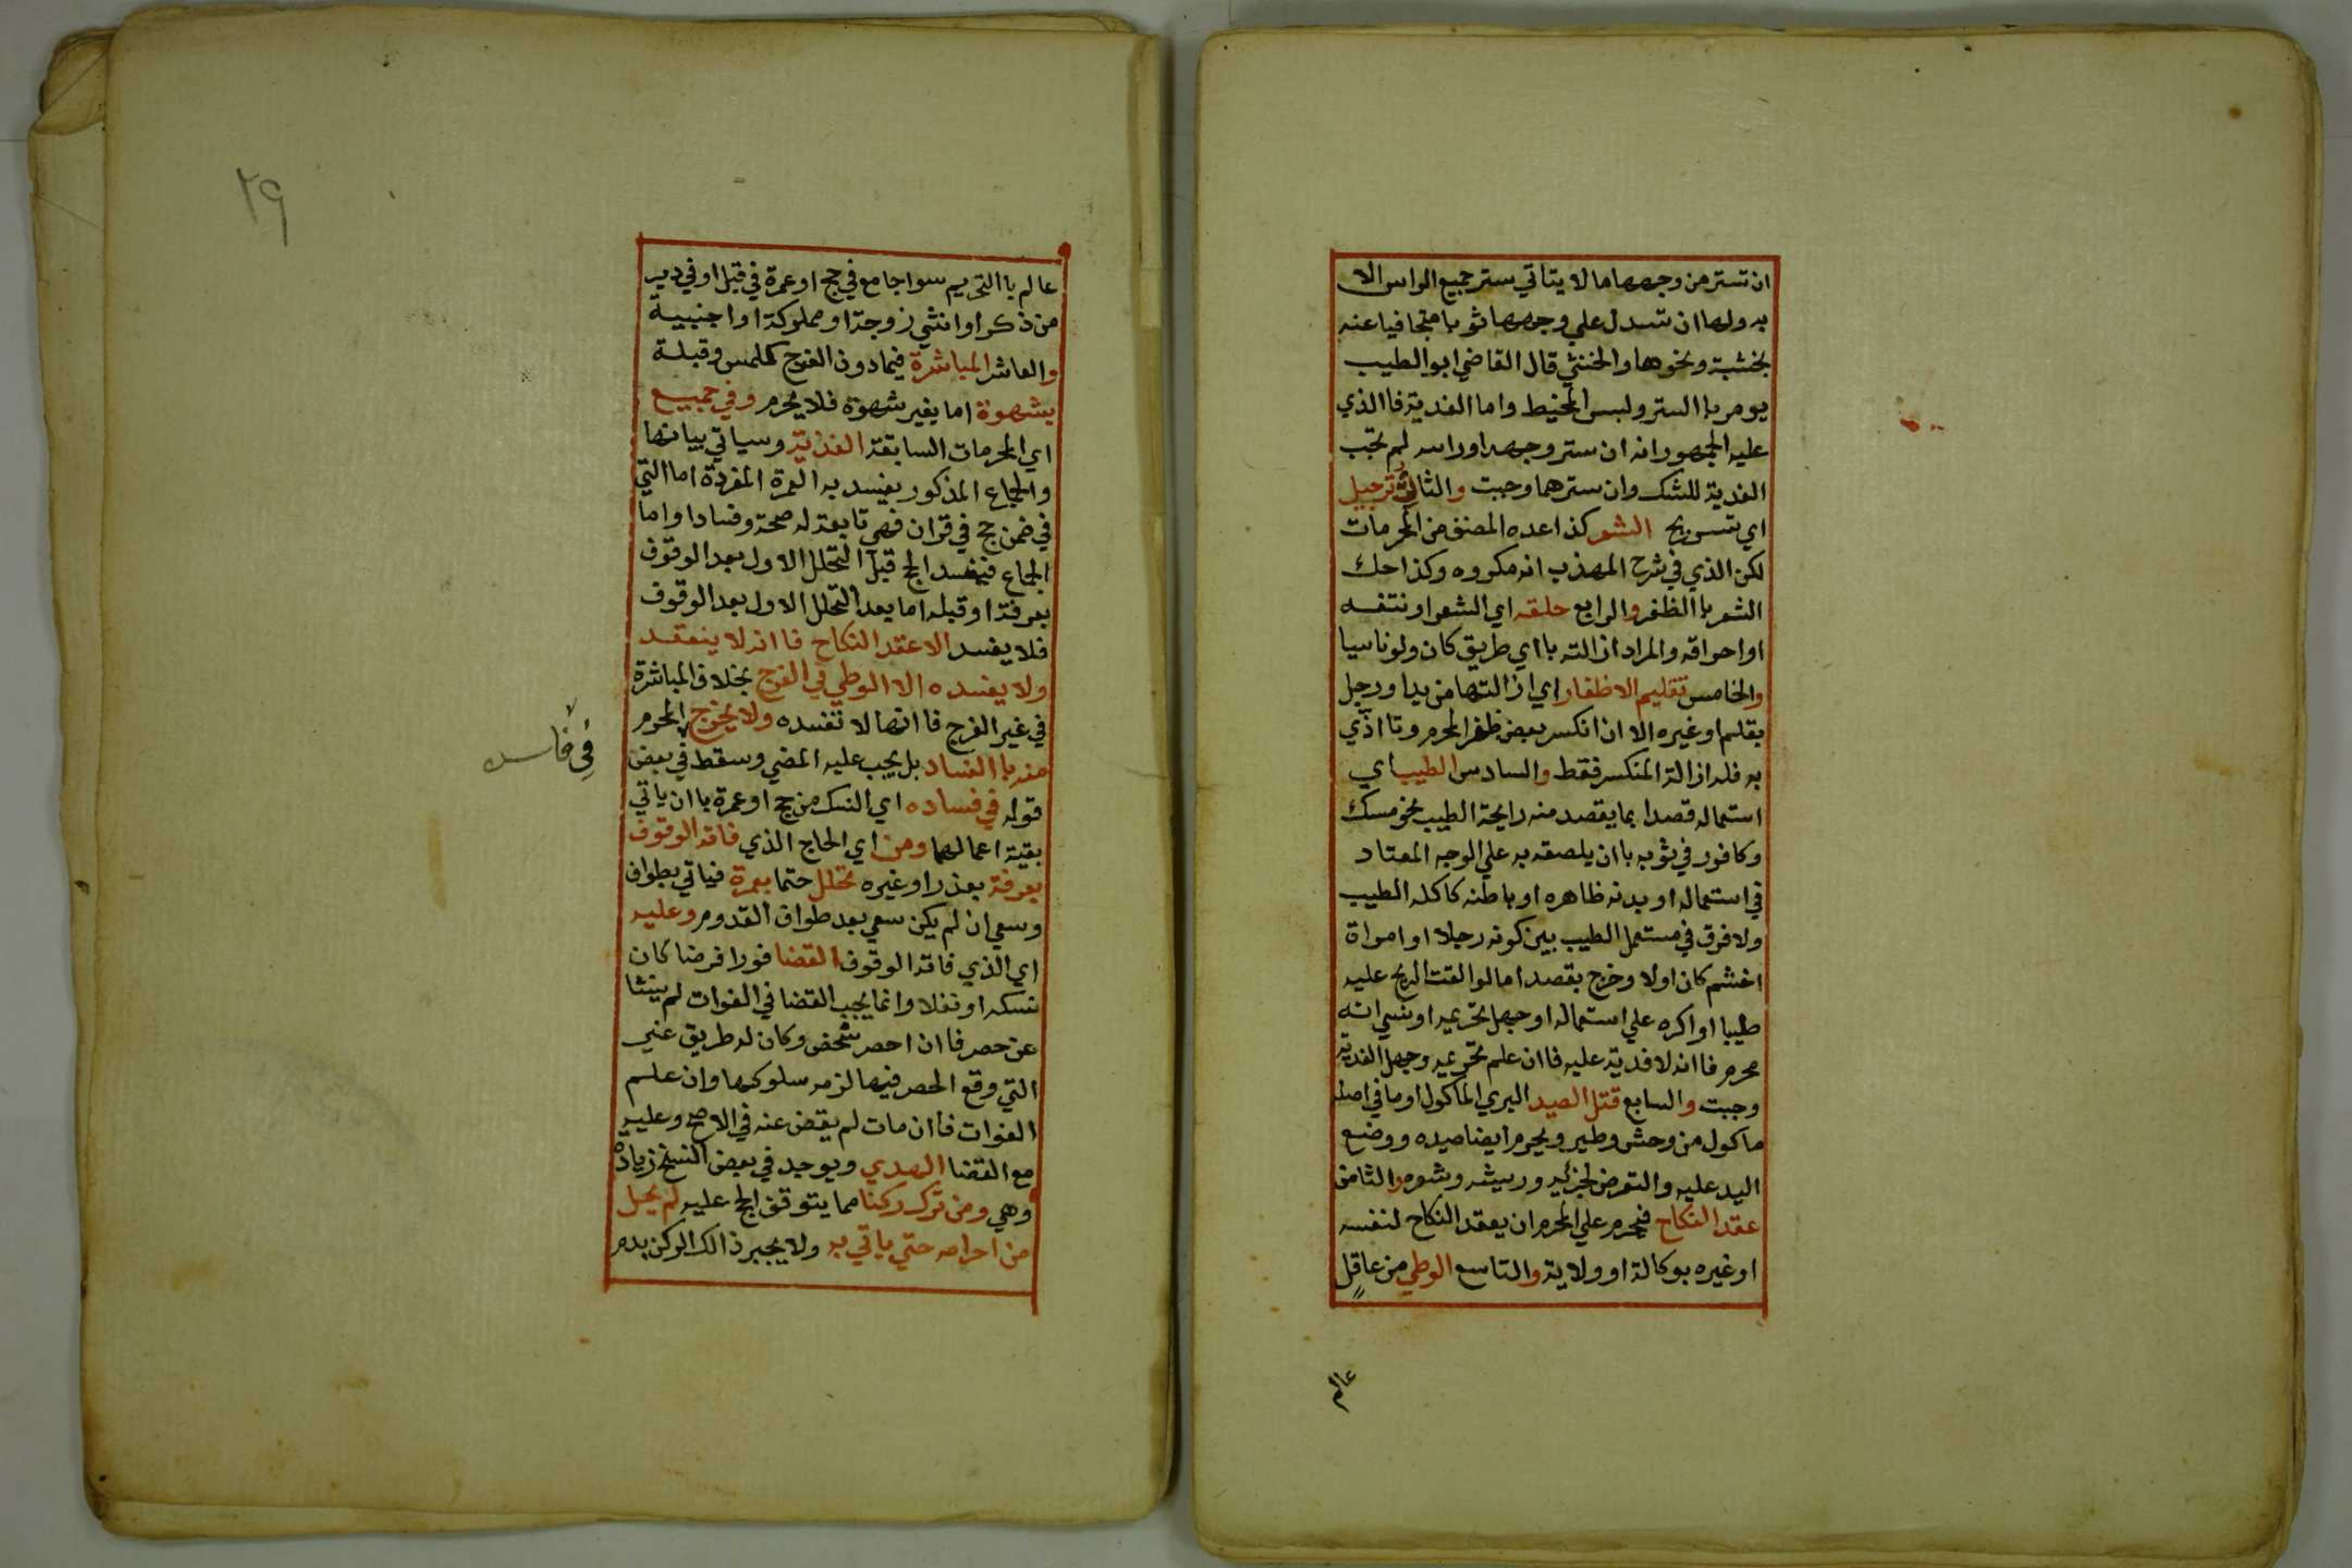 ان تستر من وجهها ما لا يتاتي ستر جميع الراس الا
به ولها ان تسدل علي وجهها ثوبا متجافيا عنه
بخشبة ونحوها والخنثي قال القاضي ابو الطيب
يومر باالستر ولبس المخيط واما الفدية فاالذي
عليه الجمهور انه ان ستر وجهه او راسه لم تجب
الفدية للشك وان سترهما وجبت والثالث ترجيل
اي تسريح الشعر كذا عده المصنف من المحرمات
لكن الذي في شرح المهذب انه مكروه وكذا حك
الشعر باالظفر والرابع حلقه اي الشعر او نتفه
او احراقه والمراد ازالته بااي طريق كان ولو ناسيا
والخامس تقليم الاظفار اي ازالتها من يد او رجل
بقلم او غيره الا ان انكسر بعض ظفر المحرم وتااذي
به فله ازالة المنكسر فقط والسادس الطيب اي
استعماله قصدا بما يقصد منه رايحة الطيب نحو مسك
وكافور في ثوبه باان يلصقه به علي الوجه المعتاد
في استعماله او بدنه ظاهره او باطنه كاكله الطيب
ولا فرق في مستعمل الطيب بين كونه رجلا او امراة
اخشم كان اولا وخرج بقصد اما لو القت الريح عليه
طيبا او اكره علي استعماله او جهل تحريمه او نسي انه
محرم فاانه لا فدية عليه فاان علم تحريمه وجهل الفدية
وجبت والسابع قتل الصيد البري الماكول او ما في اصله
ماكول من وحش وطير ويحرم ايضا صيده ووضع
اليد عليه والتعرض لجزئه وريشه وشعره والثامن
عقد النكاح فيحرم علي المحرم ان يعقد النكاح لنفسه
او غيره بوكالة او ولاية والتاسع الوطي من عاقل
عالم
٢٩
عالم باالتحريم سوا جامع في حج او عمرة في قبل او في دبر
من ذكر او انثي زوجة او مملوكة او اجنبية
والعاشر المباشرة فيما دون الفرج كلمس وقبلة
بشهوة اما بغير شهوة فلا يحرم وفي جميع
اي المحرمات السابقة الفدية وسياتي بيانها
والجماع المذكور يفسد به العمرة المفردة اما التي
في ضمن حج في قران فهي تابعة له صحة وفسادا واما
الجماع فيفسد الحج قبل التحلل الاول بعد الوقوف
بعرفة او قبله اما بعد التحلل الاول بعد الوقوف
فلا يفسد الا عقد النكاح فاانه لا ينعقد
ولا يفسده الا الوطي في الفرج بخلاف المباشرة
في غير الفرج فاانها لا تفسده ولا يخرج المحرم
منه باالفساد بل يجب عليه المضي وسقط في بعض
في فاسده
قوله في فساده اي النسك من حج او عمرة باان ياتي
بقية اعمالهما ومن اي الحاج الذي فاته الوقوف
بعرفة بعذر او غيره تحلل حتما بعمرة فياتي بطواف
وسعي ان لم يكن سعي بعد طواف القدوم وعليه
اي الذي فاته الوقوف القضا فورا فرضا كان
نسكه او نفلا وانما يجب القضا في الفوات لم ينشا
عن حصر فاان احصر شخص وكان له طريق غير
التي وقع الحصر فيها لزمه سلوكها وان علم
الفوات فاان مات لم يقض عنه في الاصح وعليه
مع القضا الهدي ويوجد في بعض النسخ زيادة
وهي ومن ترك ركنا مما يتوقف الحج عليه لم يحل
من احرامه حتي ياتي به ولا يجبر ذالك الركن بدم